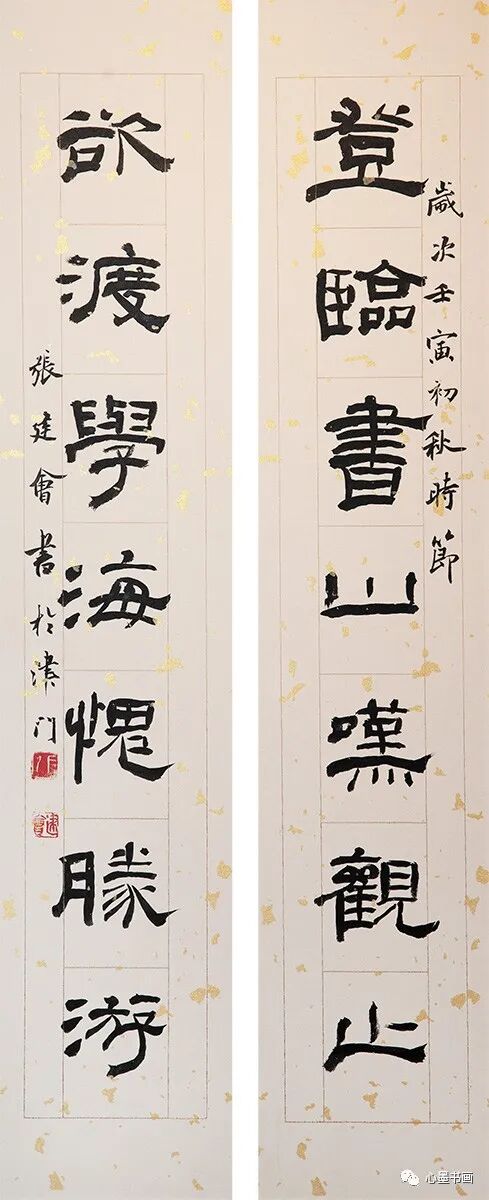 登臨書山嘆觀止
歲次壬寅初秋時節
欲渡學海愧勝游
張建會書於津門
心墨书画